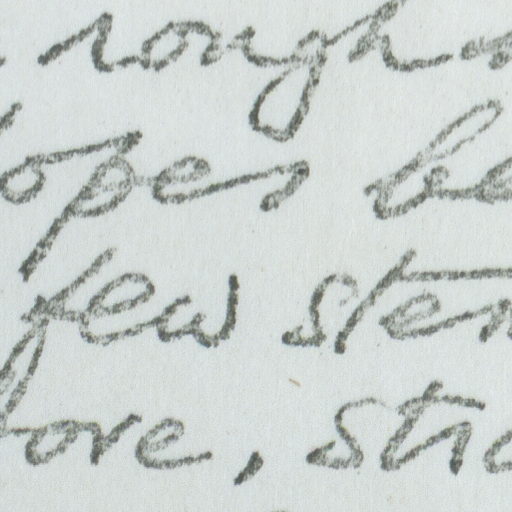 rough
opes be
few stem
ore, stic